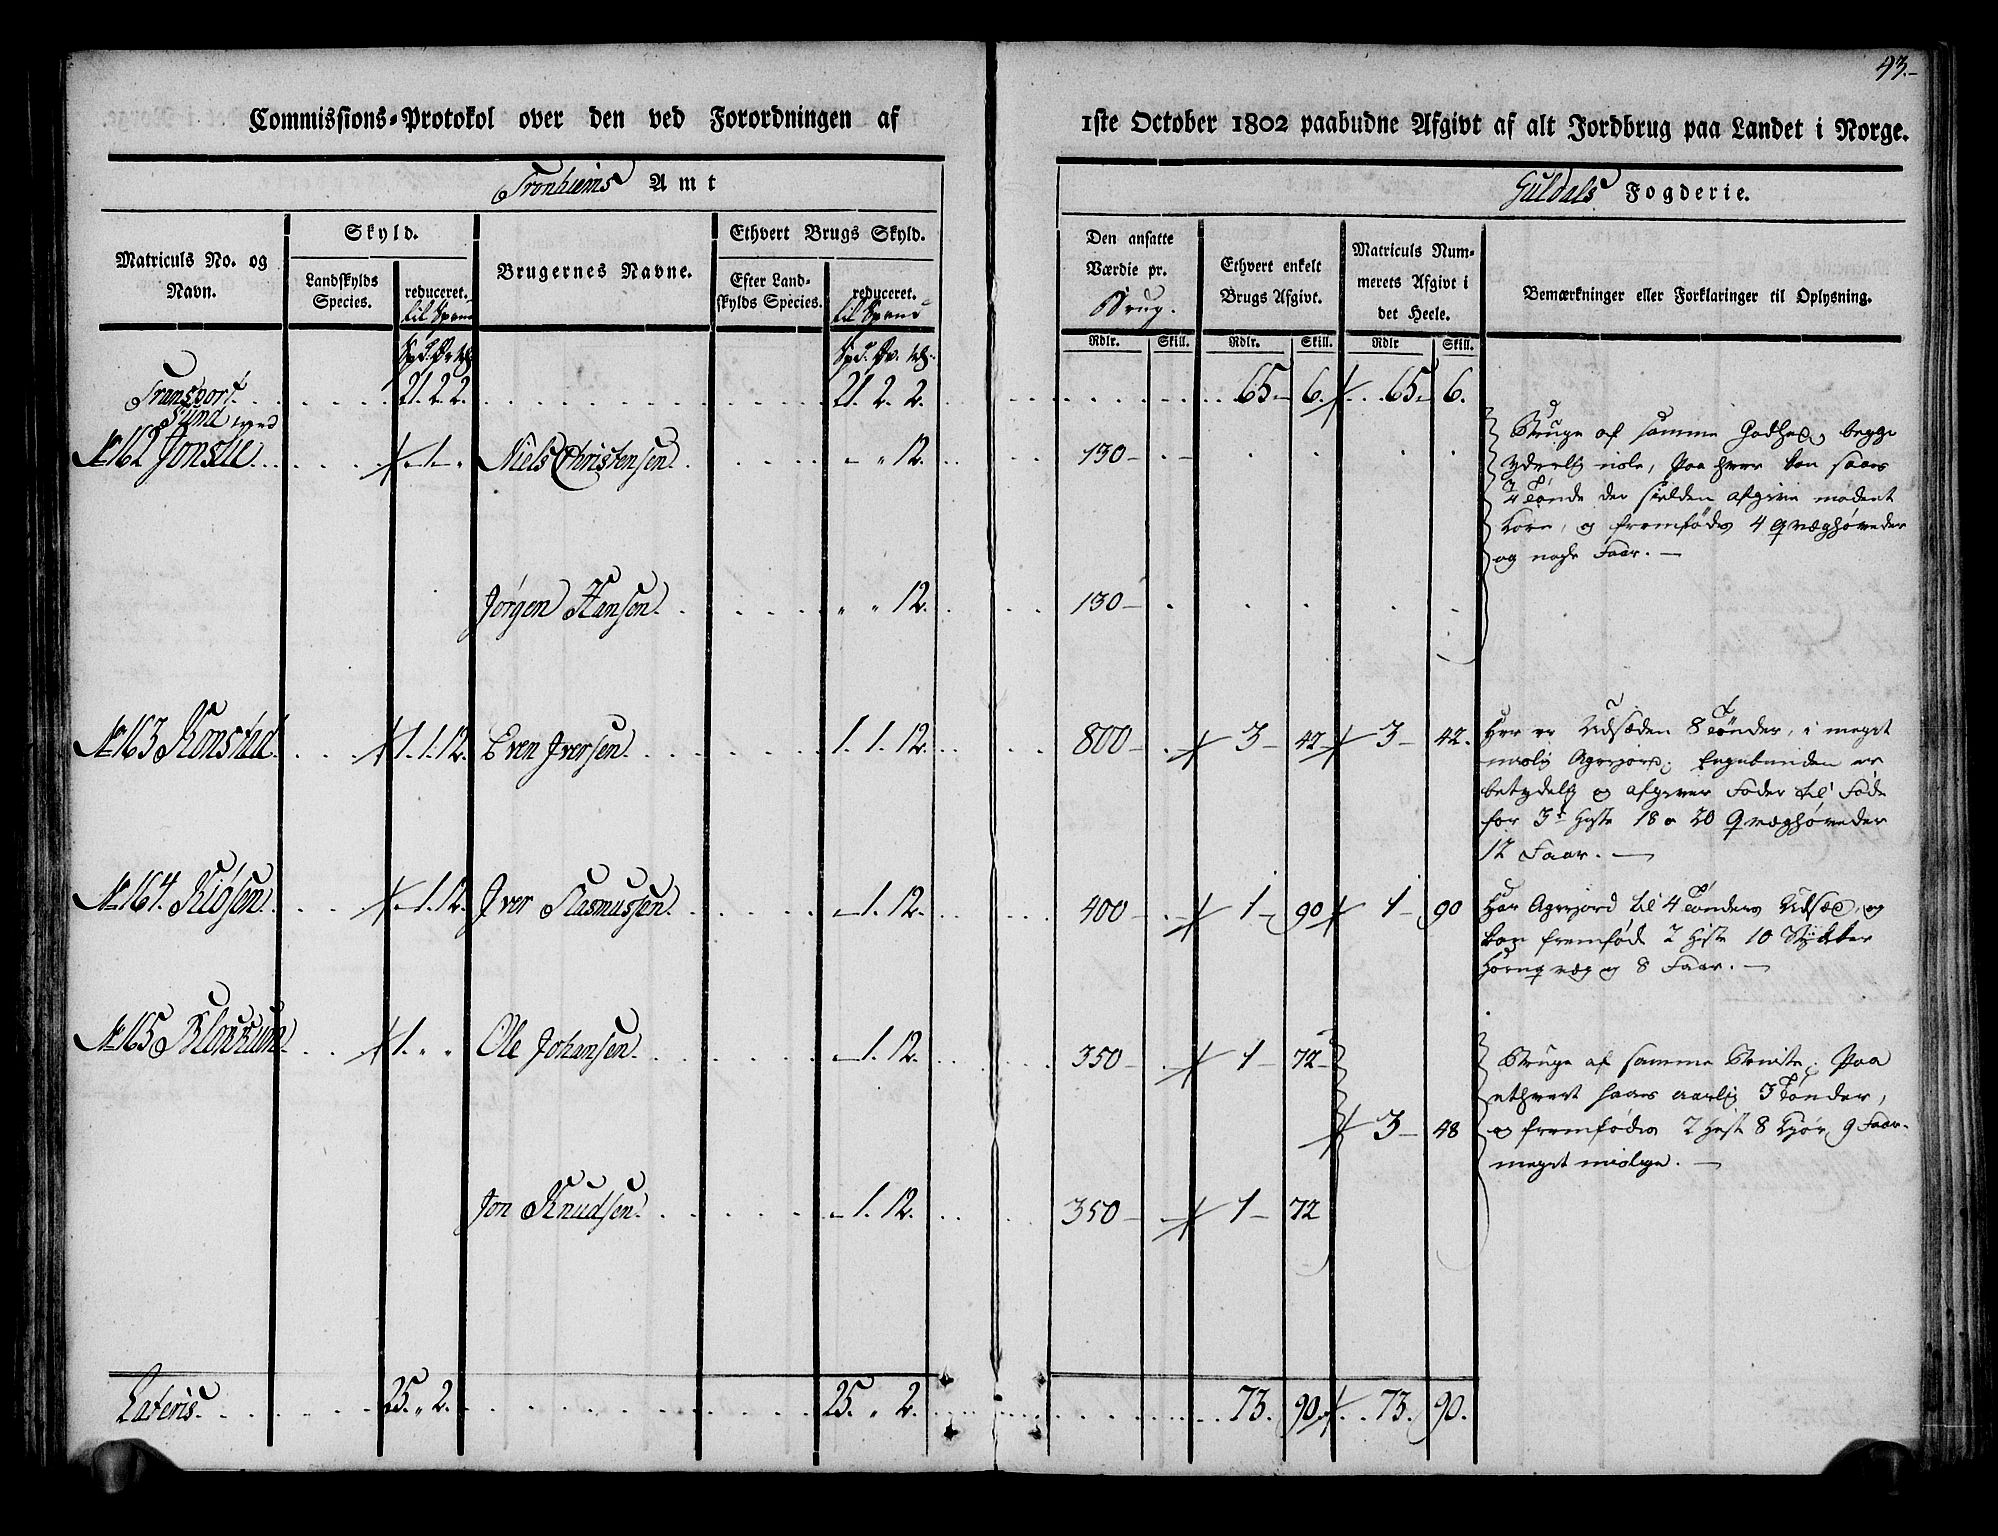 93.-
Commissions-Protokol over den ved Forordningen af 1ste October 1802 paabudne Afgivt af alt Jordbrug paa Landet i Norge.
Tronhiems Amt
Guldals Fogderie.
Matriculs No. og Navn.
Skyld.
Landskylds Species.
reduceret.
til Spand
Brugernes Navne.
Ethvert Brugs Skyld.
Efter Landskylds Species.
reduceret.
til Spand
Den ansatte Værdie pr. Brug.
Ethvert enkelt Brugs Afgivt.
Matriculs Nummerets Afgivt i det Heele.
Bemærkninger eller Forklaringer til Oplysning.
Rdlr. Skill. Rdlr. Skill. Rdlr Skill.
Transport 21. 2. 2. 21. 2. 2. 65 6. 65 6.
No 162 - 1 - Niels Christensen - " 12. 130 -
Brug af samme begge
paa hver kan saaes
4 Tønde der sielden afgive modent
Korn, og fremfødes 4 Qvæghøveder
og nogle Faar. —
Jørgen Hansen " " 12. 130 -
No 163 Konstad 1. 1. 12. Even Iversen 1. 1. 12. 800 - 3 - 42 3 - 42.
Her er Udsæden 8 Tønder, i meget
maalig Agerjord; Engebunden er
betydelig og afgiver Foder til Føde
for 3 Heste 18 a 20 Qvæghøveder
12 Faar. —
No 164. - 1. 12. Iver Rasmussen - 1. 12. 400 - 1 - 90 1 - 90
Har Agerjord til 4 Tønders Udsæd, og
kan fremføde 2 Heste 10 Stykker
Hornqvæg og 8 Faar. —
No 165 1. " " Ole Johansen - 1. 12. 350 - 1 - 72 -
3 - 48
Brug af samme paa
ethvert saaes aarlig 3 Tønder,
og fremfødes 2 Heste 8 Kjør, 9 Faar
meget maalige. —
Jon Knudsen - 1. 12. 350 - 1 - 72
Lateris. 25. " 2. 25. " 2. 73. 90. 73. 90.